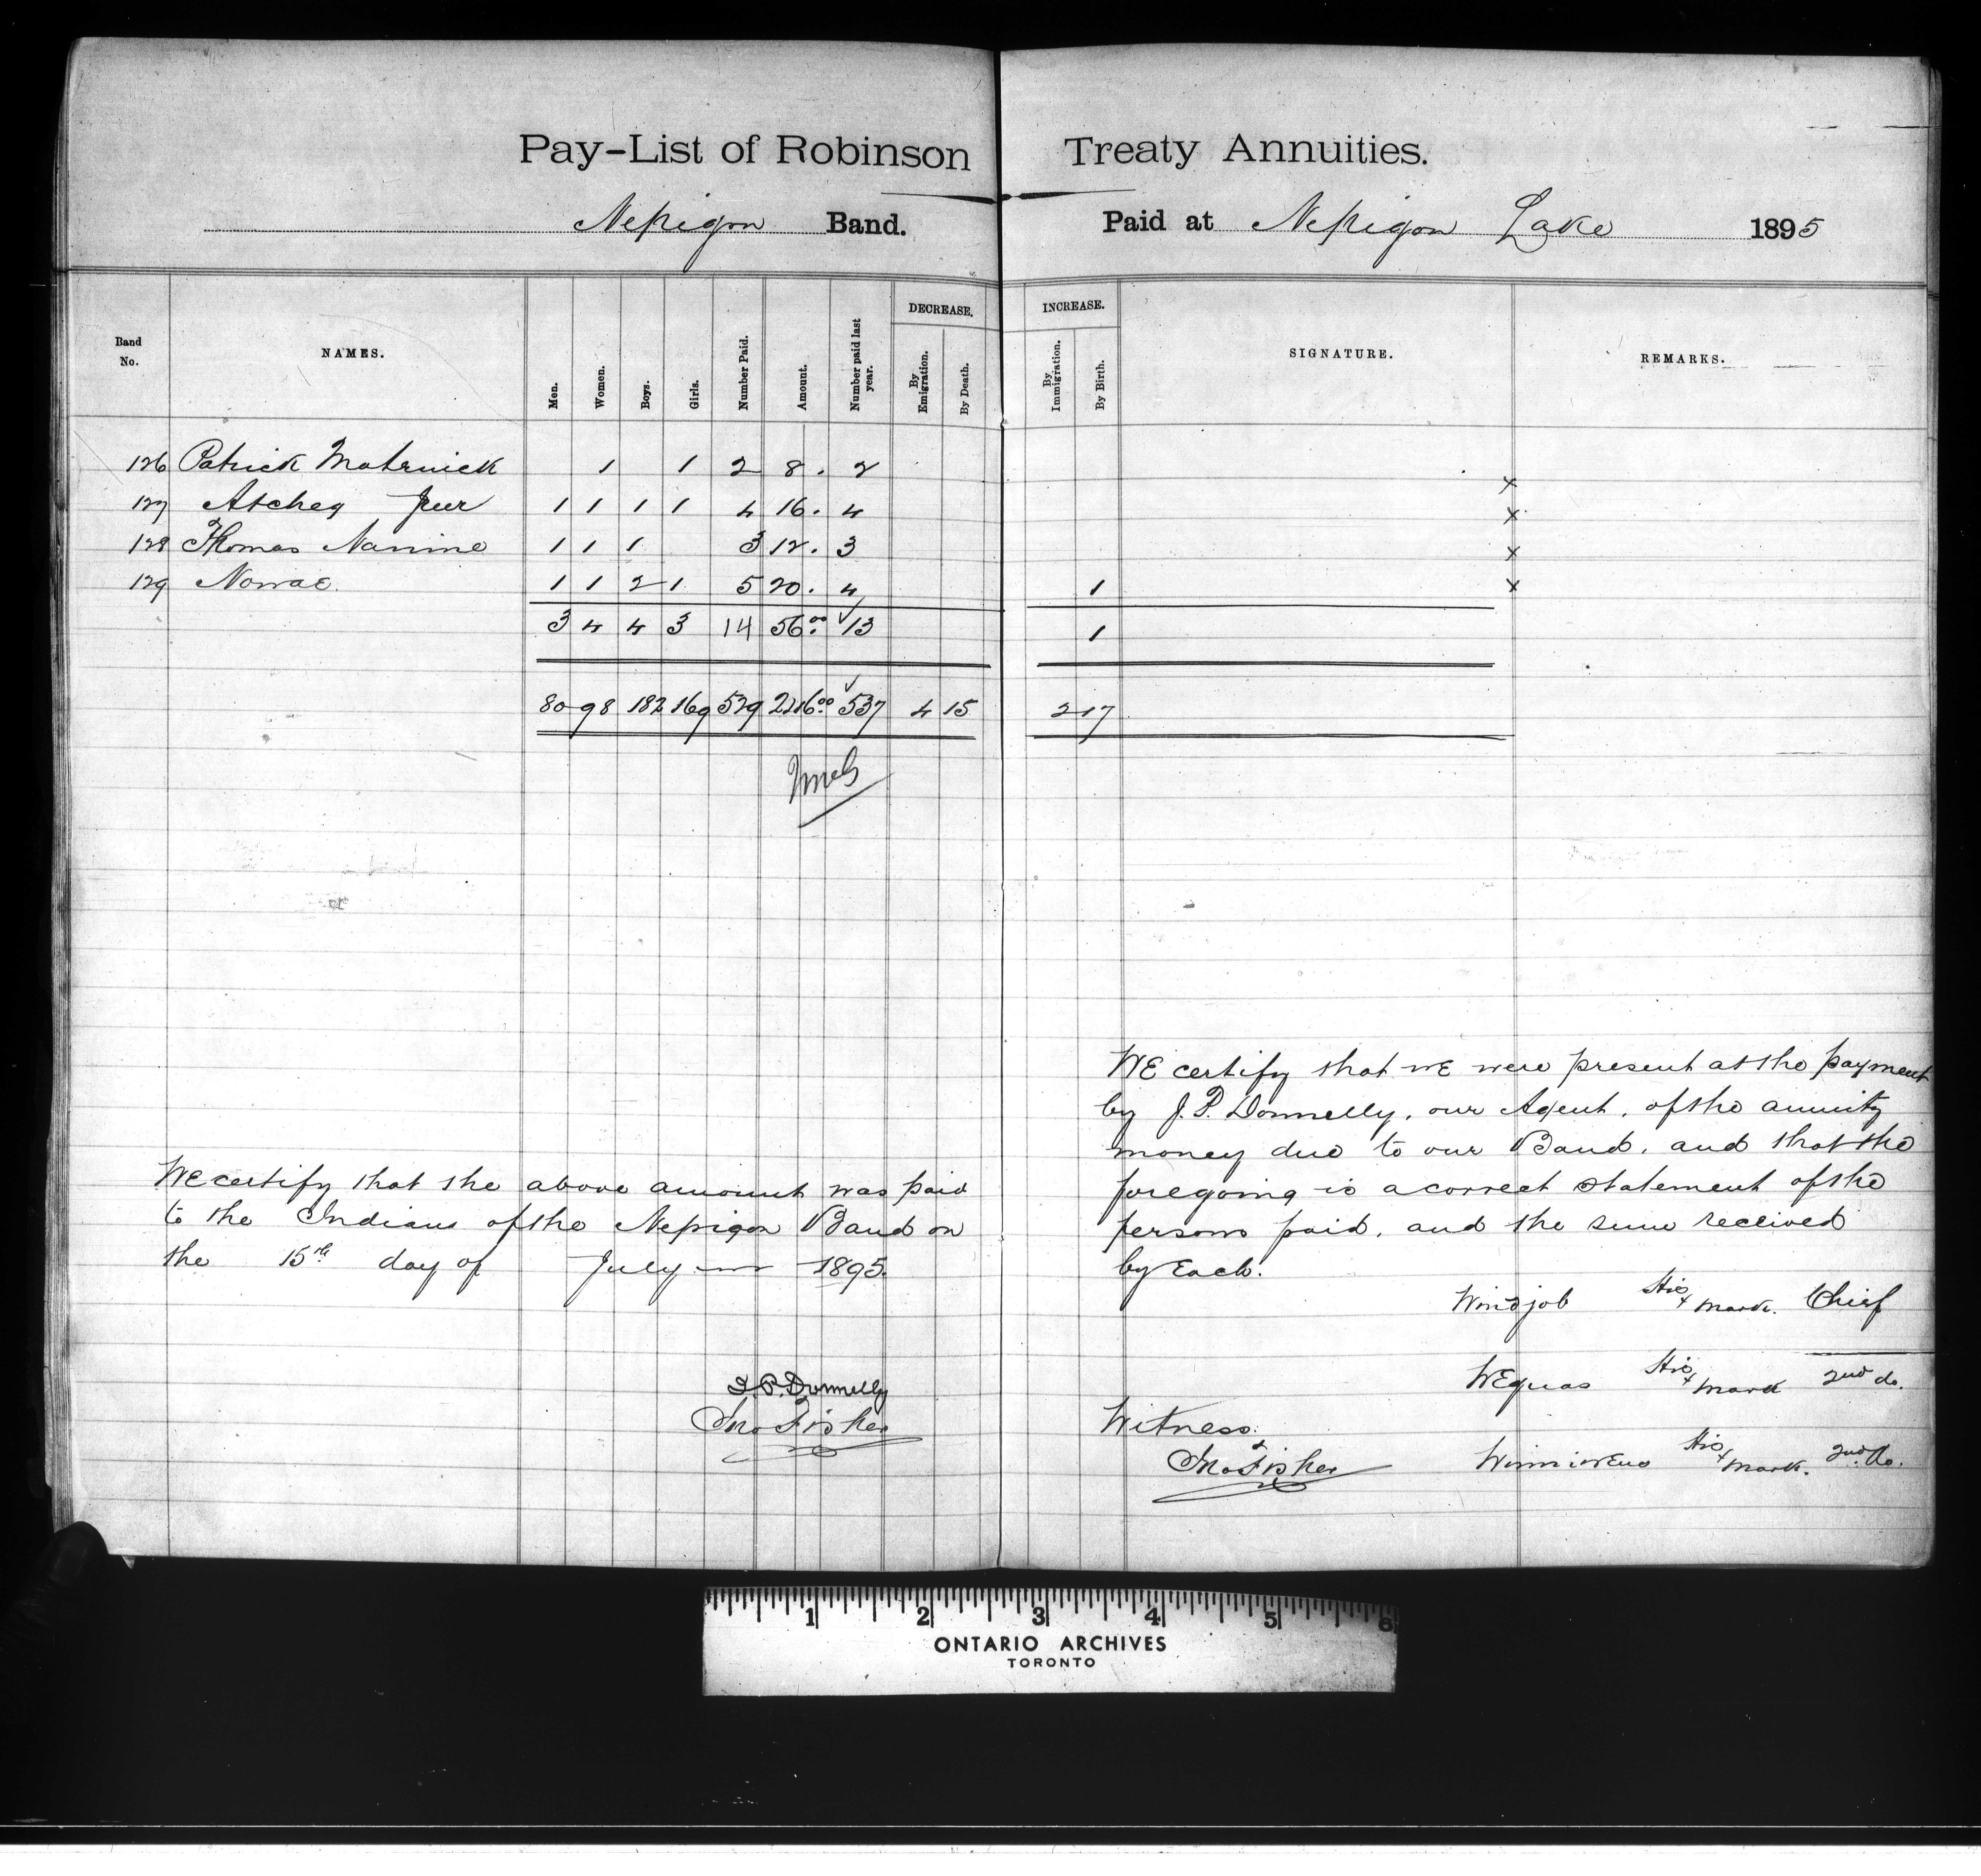 Pay-List of Robinson Treaty Annuities.
Nepigon Band. Paid at Nepigon Lake 1895
Band No. NAMES. Men. Women. Boys. Girls. Number Paid. Amount. Number paid last year. DECREASE. By Emigration. By Death. INCREASE. By Immigration. By Birth. SIGNATURE. REMARKS.
126 Patrick 1 1 2 8. 2 x
127 1 1 1 1 4 16. 4 x
128 Thomas 1 1 1 3 12. 3 x
129 1 1 2 1 5 20. 4 1 x
3 4 4 3 14 56.00 13 1
80 98 182 169 529 2116.00 537 4 15 2 17
We certify that the above amount was paid
to the Indians of the Nepigon Band on
the 15th day of July 1895.
J.P. Donnelly
Jno Fisher
WE certify that WE were present at the payment
by J. P. Donnelly, our Agent, of the annuity
money due to our Band, and that the
foregoing is a correct statement of the
persons paid, and the sum received
by Each.
Windjob His x mark. Chief
WEquas His x mark 2nd do.
Witness.
Jno Fisher His x mark. 2nd do.
1 2 3 4 5 6
ONTARIO ARCHIVES
TORONTO